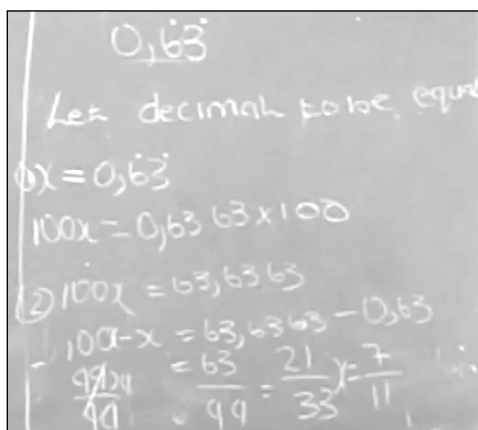 0,6̇3̇
Let decimal to be equal
① x = 0,6̇3̇
100x = 0,6363 × 100
② 100x = 63,6363
- 100x - x = 63,6363 - 0,63
99x/99 = 63/99 = 21/33 x = 7/11